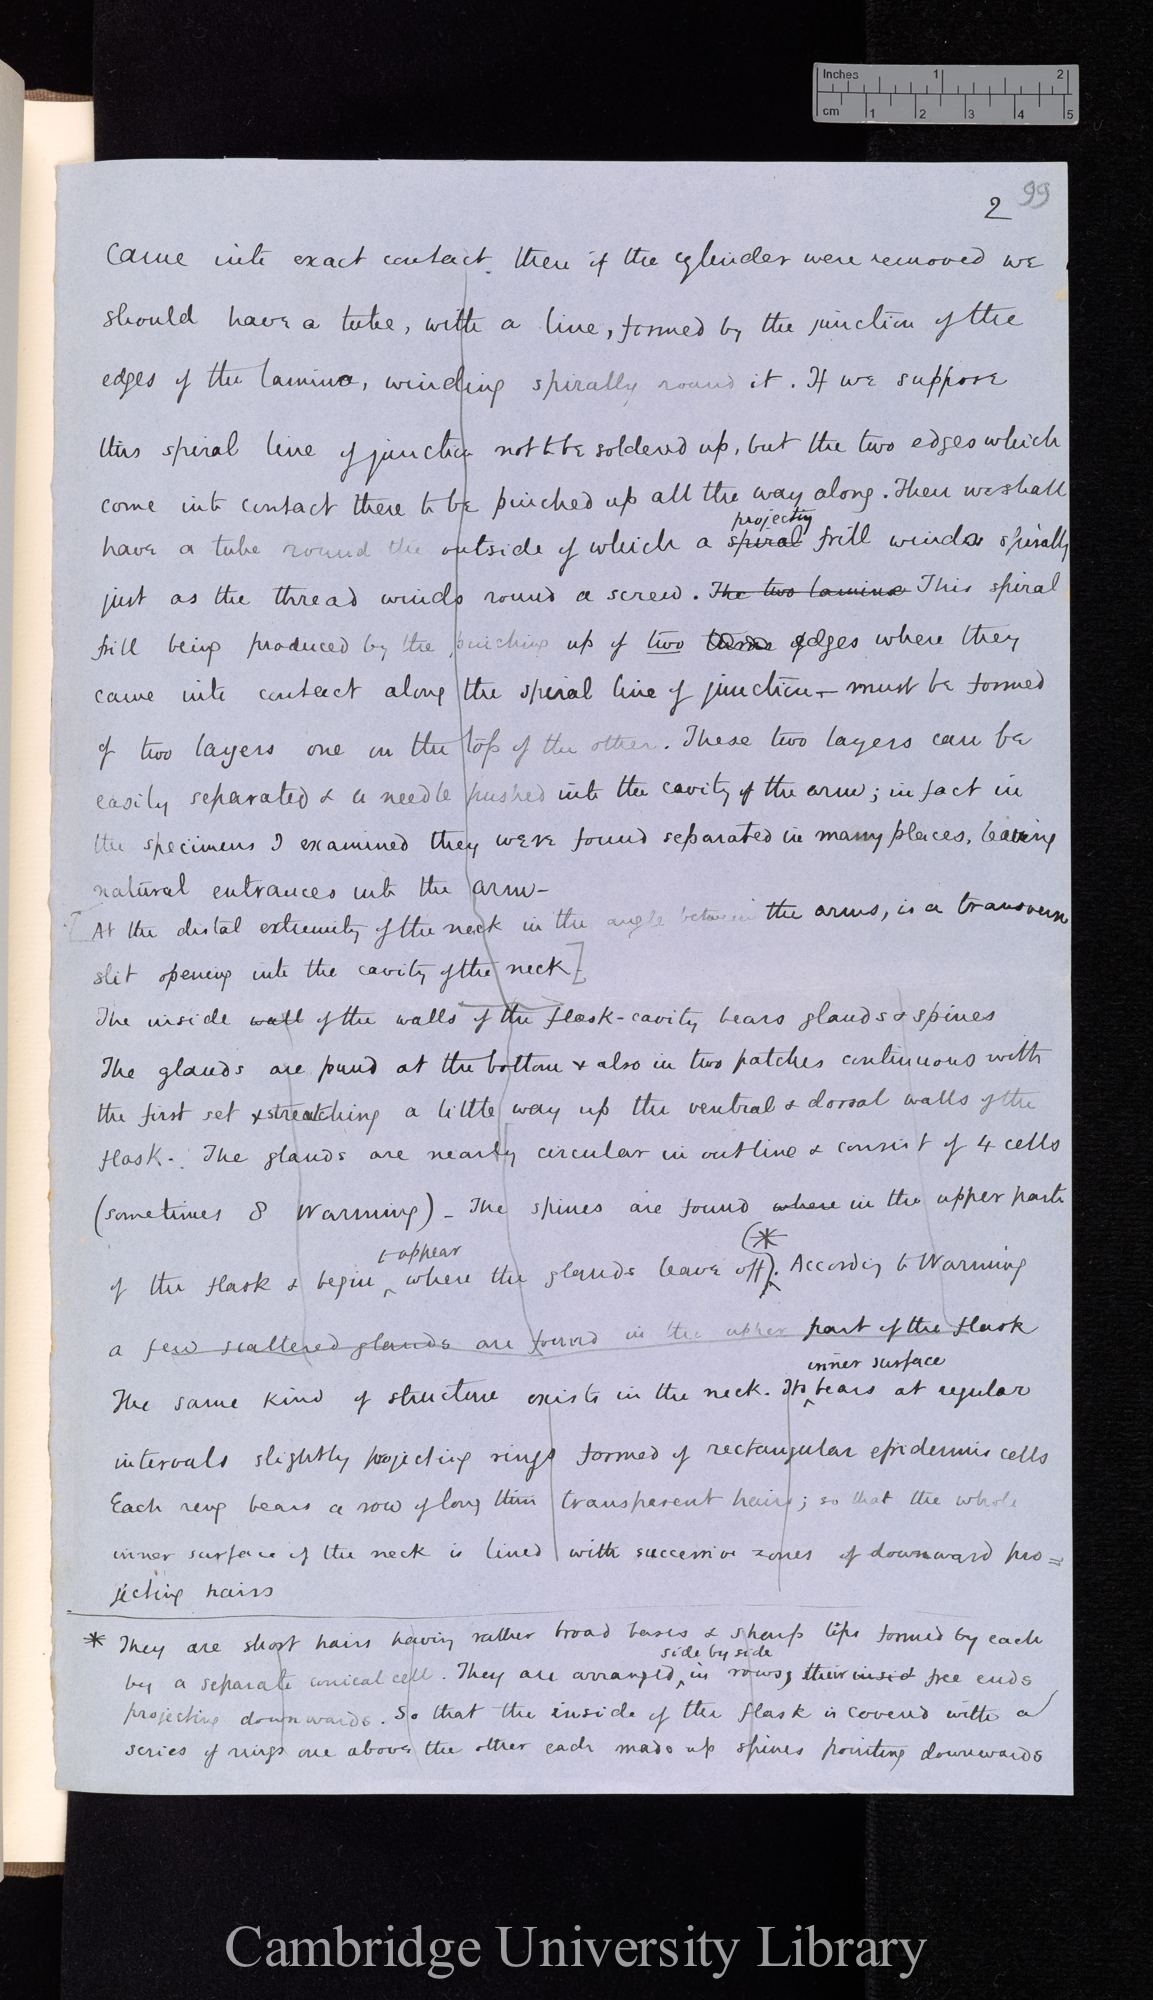 Inches 1 2
cm 1 2 3 4 5
99
2
came into exact contact. then if the cylinder were removed we
should have a tube, with a line, formed by the junction of the
edges of the lamina, winding spirally round it. If we suppose
this spiral line of junction not to be soldered up, but the two edges which
come into contact there to be pinched up all the way along. Then we shall
projecting
have a tube round the outside of which a spiral frill winds spirally
just as the thread winds round a screw. The two lamina This spiral
frill being produced by the pinching up of two edges where they
came into contact along the spiral line of junction – must be formed
of two layers one on the top of the other. These two layers can be
easily separated & a needle pushed into the cavity of the arm; in fact in
the specimens I examined they were found separated in many places, leaving
natural entrances into the arm –
[At the distal extremity of the neck in the angle between the arms, is a transverse
slit opening into the cavity of the neck]
The inside wall of the walls of the flask-cavity bears glands & spines
The glands are found at the bottom & also in two patches continuous with
the first set & stretching a little way up the ventral & dorsal walls of the
flask. The glands are nearly circular in outline & consist of 4 cells
(sometimes 8 Warming) – The spines are found where in the upper parts
t appear (*
of the flask & begin where the glands leave off). According to Warming
a few scattered glands are found in the upper part of the flask
inner surface
The same kind of structure exists in the neck. Its bears at regular
intervals slightly projecting rings formed of rectangular epidermis cells
Each ring bears a row of long thin transparent hairs; so that the whole
inner surface of the neck is lined with successive zones of downward pro=
jecting hairs
* They are short hairs having rather broad bases & sharp tips formed by each
side by side
by a separate conical cell. They are arranged in rows, their insid free ends
projecting downwards. So that the inside of the flask is covered with a
series of rings one above the other each made up spines pointing downwards
Cambridge University Library